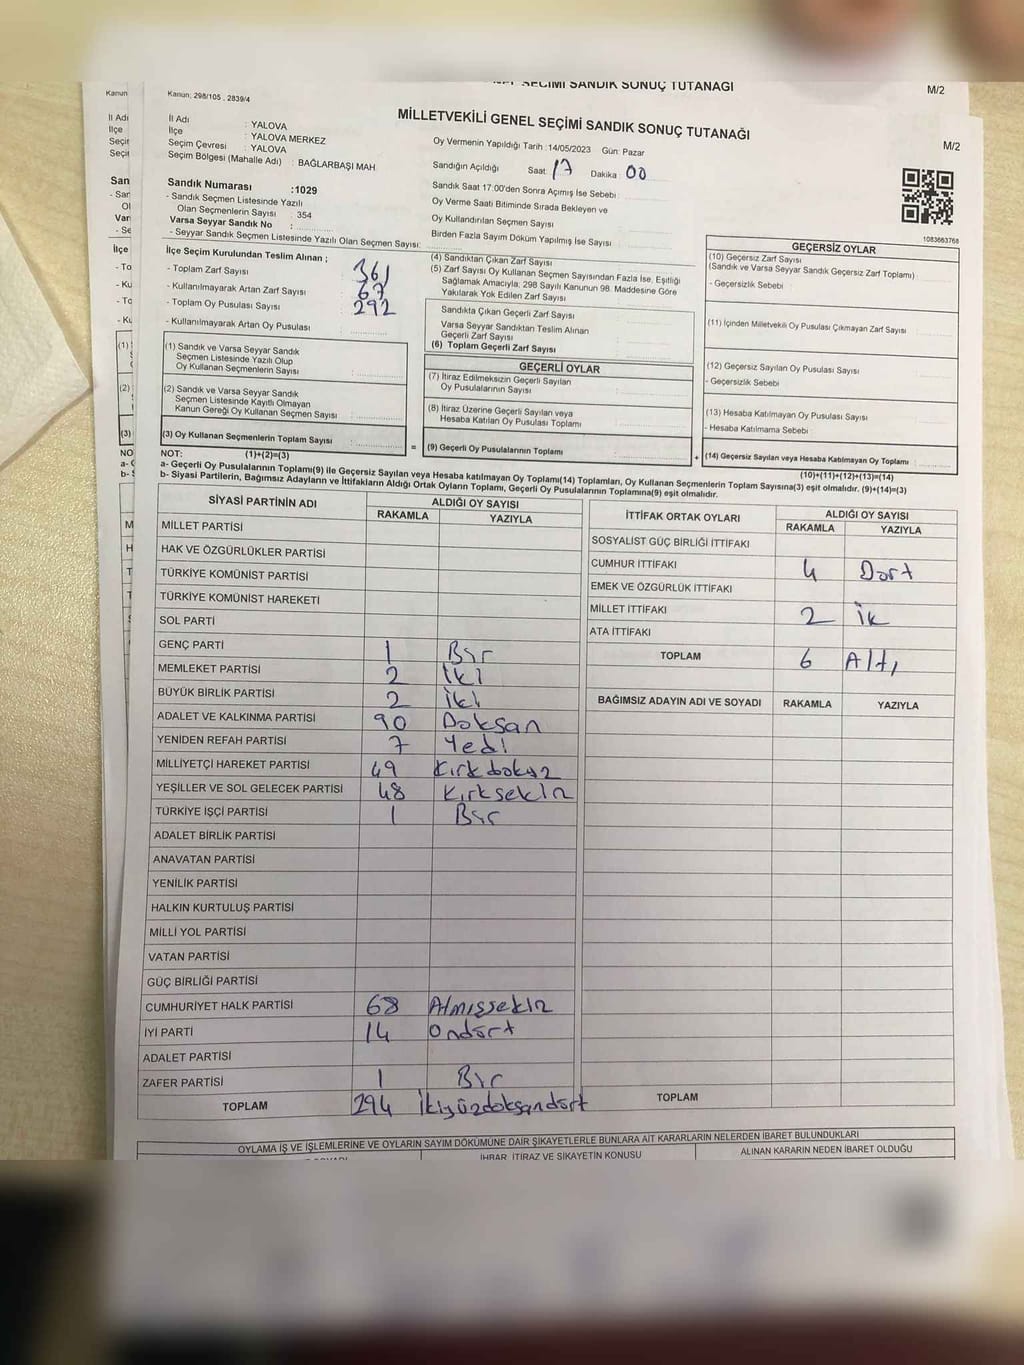 SEÇİMİ SANDIK SONUÇ TUTANAĞI
M/2
Kanun
Kanun: 298/105 , 2839/4
MİLLETVEKİLİ GENEL SEÇİMİ SANDIK SONUÇ TUTANAĞI
M/2
İl Adı : YALOVA
İlçe : YALOVA MERKEZ
Seçim Çevresi : YALOVA
Seçim Bölgesi (Mahalle Adı) : BAĞLARBAŞI MAH
Oy Vermenin Yapıldığı Tarih :14/05/2023 Gün: Pazar
Sandığın Açıldığı Saat 17 Dakika 00
Sandık Numarası :1029
- Sandık Seçmen Listesinde Yazılı
Olan Seçmenlerin Sayısı : 354
Varsa Seyyar Sandık No :
- Seyyar Sandık Seçmen Listesinde Yazılı Olan Seçmen Sayısı:
Sandık Saat 17:00'den Sonra Açımış İse Sebebi
Oy Verme Saati Bitiminde Sırada Bekleyen ve
Oy Kullandırılan Seçmen Sayısı
Birden Fazla Sayım Döküm Yapılmış İse Sayısı
1083663768
İlçe Seçim Kurulundan Teslim Alınan ;
- Toplam Zarf Sayısı : 361
- Kullanılmayarak Artan Zarf Sayısı : 67
- Toplam Oy Pusulası Sayısı : 292
- Kullanılmayarak Artan Oy Pusulası :
(1) Sandık ve Varsa Seyyar Sandık
Seçmen Listesinde Yazılı Olup
Oy Kullanan Seçmenlerin Sayısı :
(2) Sandık ve Varsa Seyyar Sandık
Seçmen Listesinde Kayıtlı Olmayan
Kanun Gereği Oy Kullanan Seçmen Sayısı :
(3) Oy Kullanan Seçmenlerin Toplam Sayısı :
(4) Sandıktan Çıkan Zarf Sayısı
(5) Zarf Sayısı Oy Kullanan Seçmen Sayısından Fazla İse, Eşitliği
Sağlamak Amacıyla; 298 Sayılı Kanunun 98. Maddesine Göre
Yakılarak Yok Edilen Zarf Sayısı
Sandıkta Çıkan Geçerli Zarf Sayısı
Varsa Seyyar Sandıktan Teslim Alınan
Geçerli Zarf Sayısı
(6) Toplam Geçerli Zarf Sayısı
GEÇERLİ OYLAR
(7) İtiraz Edilmeksizin Geçerli Sayılan
Oy Pusulalarının Sayısı
(8) İtiraz Üzerine Geçerli Sayılan veya
Hesaba Katılan Oy Pusulası Toplamı
= (9) Geçerli Oy Pusulalarının Toplamı
GEÇERSİZ OYLAR
(10) Geçersiz Zarf Sayısı
(Sandık ve Varsa Seyyar Sandık Geçersiz Zarf Toplamı)
- Geçersizlik Sebebi :
(11) İçinden Milletvekili Oy Pusulası Çıkmayan Zarf Sayısı
(12) Geçersiz Sayılan Oy Pusulası Sayısı
- Geçersizlik Sebebi
(13) Hesaba Katılmayan Oy Pusulası Sayısı
- Hesaba Katılmama Sebebi :
+ (14) Geçersiz Sayılan veya Hesaba Katılmayan Oy Toplamı
NOT: (1)+(2)=(3)
(10)+(11)+(12)+(13)=(14)
a- Geçerli Oy Pusulalarının Toplamı(9) ile Geçersiz Sayılan veya Hesaba katılmayan Oy Toplamı(14) Toplamları, Oy Kullanan Seçmenlerin Toplam Sayısına(3) eşit olmalıdır. (9)+(14)=(3)
b- Siyasi Partilerin, Bağımsız Adayların ve İttifakların Aldığı Ortak Oyların Toplamı, Geçerli Oy Pusulalarının Toplamına(9) eşit olmalıdır.
SİYASİ PARTİSİNİN ADI ALDIĞI OY SAYISI
RAKAMLA YAZIYLA
MİLLET PARTİSİ
HAK VE ÖZGÜRLÜKLER PARTİSİ
TÜRKİYE KOMÜNİST PARTİSİ
TÜRKİYE KOMÜNİST HAREKETİ
SOL PARTİ
GENÇ PARTİ 1 Bir
MEMLEKET PARTİSİ 2 İki
BÜYÜK BİRLİK PARTİSİ 2 İki
ADALET VE KALKINMA PARTİSİ 90 Doksan
YENİDEN REFAH PARTİSİ 7 Yedi
MİLLİYETÇİ HAREKET PARTİSİ 49 Kırkdokuz
YEŞİLLER VE SOL GELECEK PARTİSİ 48 Kırksekiz
TÜRKİYE İŞÇİ PARTİSİ 1 Bir
ADALET BİRLİK PARTİSİ
ANAVATAN PARTİSİ
YENİLİK PARTİSİ
HALKIN KURTULUŞ PARTİSİ
MİLLİ YOL PARTİSİ
VATAN PARTİSİ
GÜÇ BİRLİĞİ PARTİSİ
CUMHURİYET HALK PARTİSİ 68 Atmışsekiz
İYİ PARTİ 14 Ondört
ADALET PARTİSİ
ZAFER PARTİSİ 1 Bir
TOPLAM 294 İkiyüzdoksandört
İTTİFAK ORTAK OYLARI ALDIĞI OY SAYISI
RAKAMLA YAZIYLA
SOSYALİST GÜÇ BİRLİĞİ İTTİFAKI
CUMHUR İTTİFAKI 4 Dört
EMEK VE ÖZGÜRLÜK İTTİFAKI
MİLLET İTTİFAKI 2 İk
ATA İTTİFAKI
TOPLAM 6 Altı
BAĞIMSIZ ADAYIN ADI VE SOYADI RAKAMLA YAZIYLA
TOPLAM
OYLAMA İŞ VE İŞLEMLERİNE VE OYLARIN SAYIM DÖKÜMÜNE DAİR ŞİKAYETLERLE BUNLARA AİT KARARLARIN NELERDEN İBARET BULUNDUKLARI
İHBAR, İTİRAZ VE ŞİKAYETİN KONUSU
ALINAN KARARIN NEDEN İBARET OLDUĞU